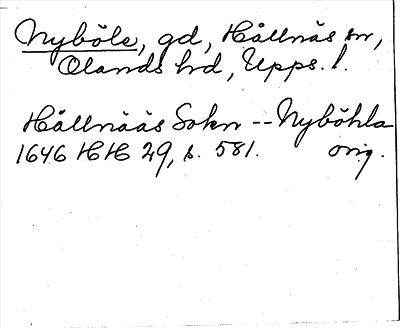 Nyböle, gd, Hållnäs sn,
Olands hd, Upps. l.
Hållnääs Sokn -- Nyböhla
1646 HH 29, s. 581. orig.